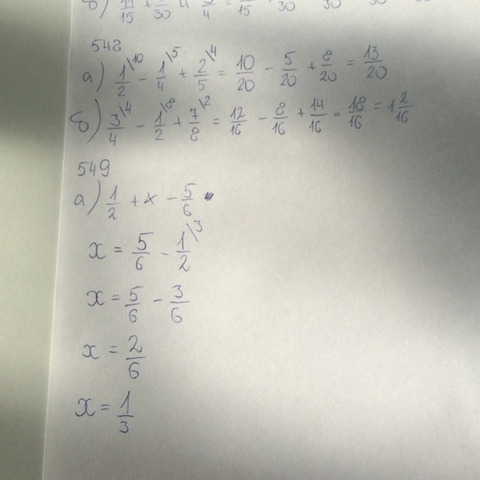 548
а) 1/2\10 - 1/4\5 + 2/5\4 = 10/20 - 5/20 + 8/20 = 13/20
б) 3/4\4 - 1/2\8 + 7/8\2 = 12/16 - 8/16 + 14/16 = 18/16 = 1 2/16
549
а) 1/2 + x - 5/6
x = 5/6 - 1/2\3
x = 5/6 - 3/6
x = 2/6
x = 1/3